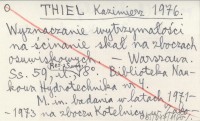 THIEL Kazimierz 1976.
Wyznaczanie wytrzymałości
na ścinanie skał na zboczach
osuwiskowych. — Warszawa.
Ss. 59, il. 58. Biblioteka Nau-
kowa Hydrotechnika nr 4
M. in. badania w latach 1971-
-1973 na zboczu Kotelnicy